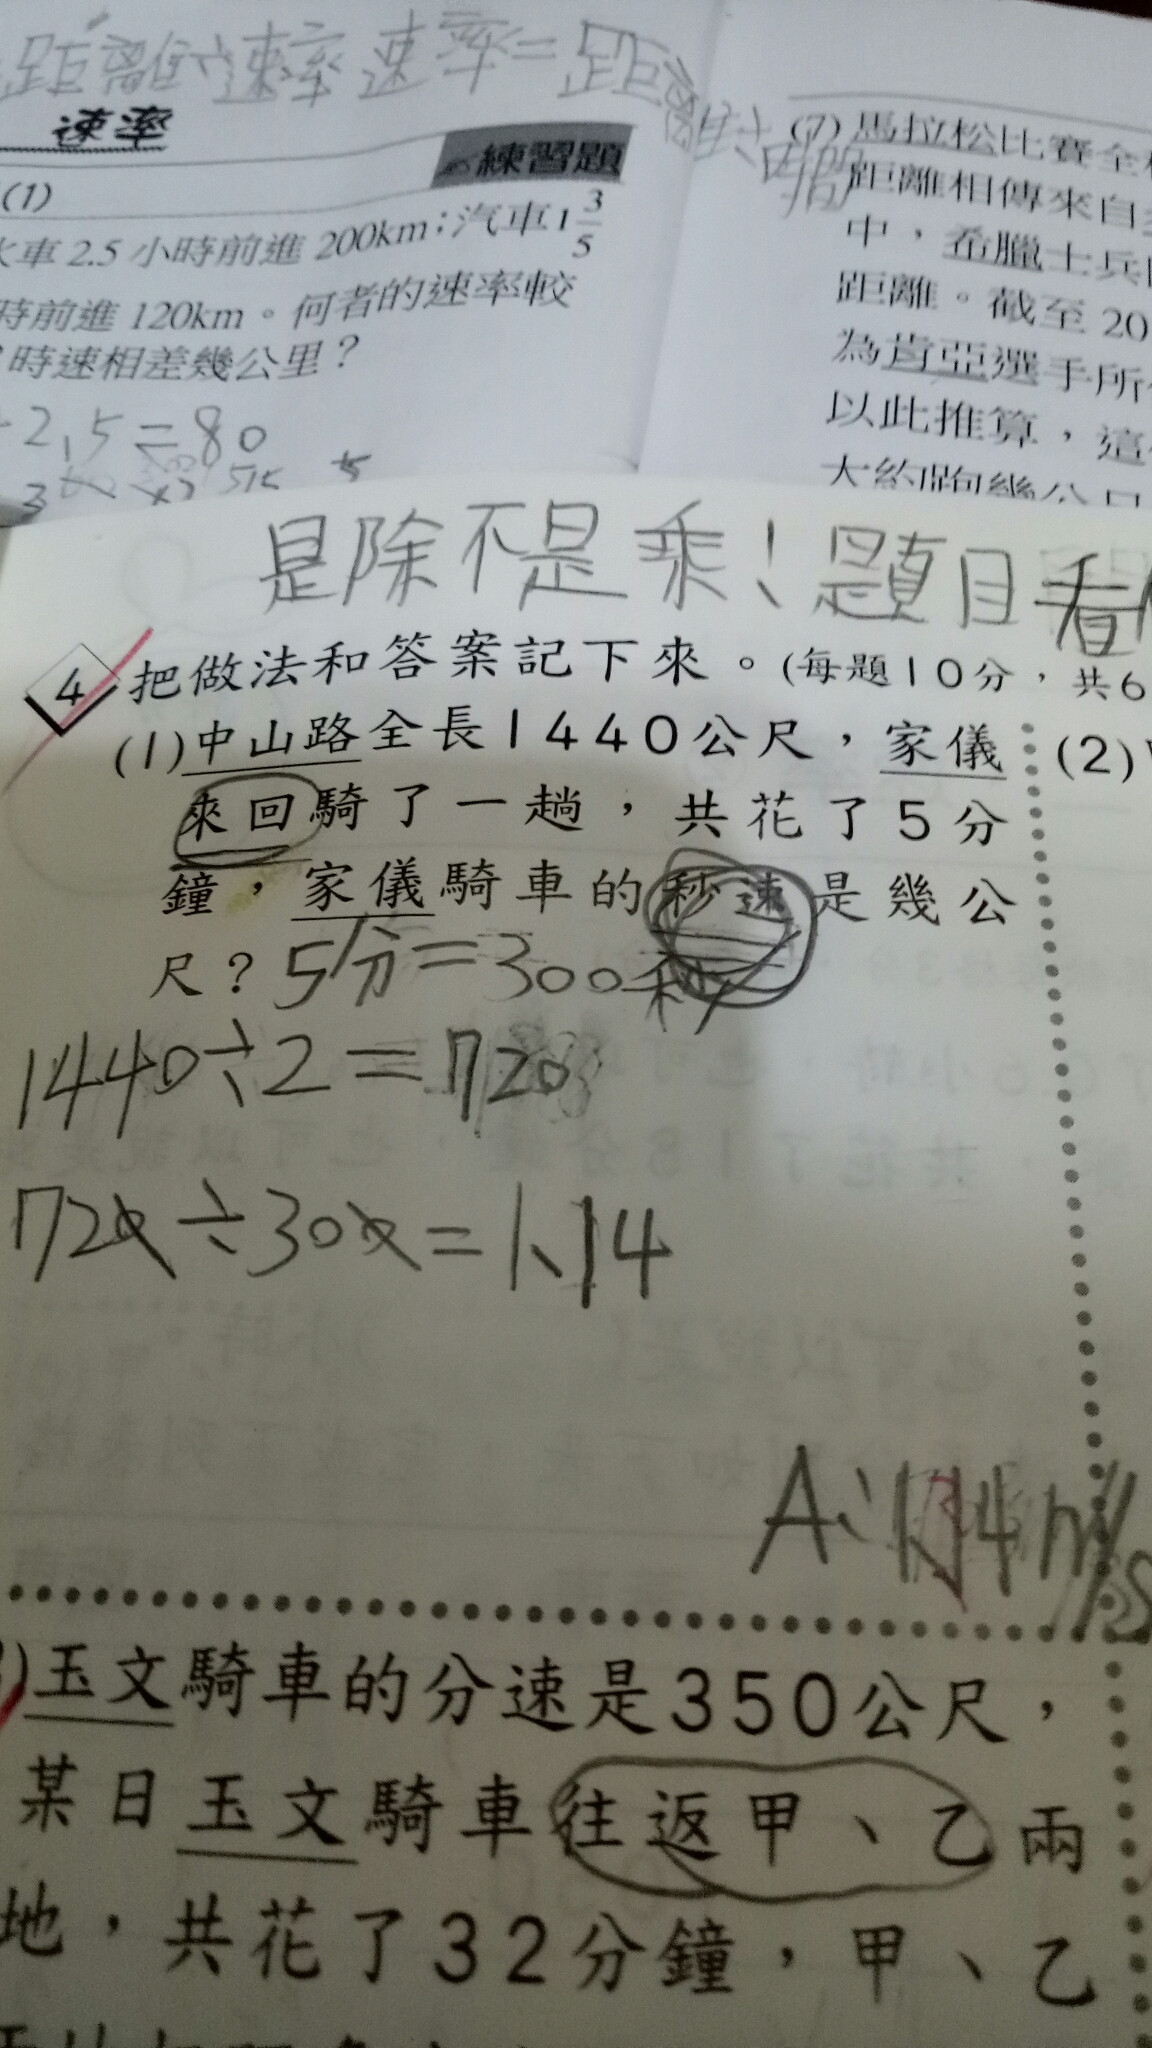 距離÷速率 速率=距離÷時間
速率
練習題
(1)
火車2.5小時前進200km；汽車1 3/5
時前進120km。何者的速率較
時速相差幾公里？
2.5=80
(7)馬拉松比賽全
距離相傳來自
中，希臘士兵
距離。截至20
為肯亞選手所
以此推算，這
大約跑幾公
是除不是乘！題目看
4 把做法和答案記下來。(每題10分，共6
(1)中山路全長1440公尺，家儀
來回騎了一趟，共花了5分
鐘，家儀騎車的秒速是幾公
尺？5分=300秒
1440÷2=720
720÷300=1.14
A:1.14m/s
(2)
)玉文騎車的分速是350公尺，
某日玉文騎車往返甲、乙兩
地，共花了32分鐘，甲、乙